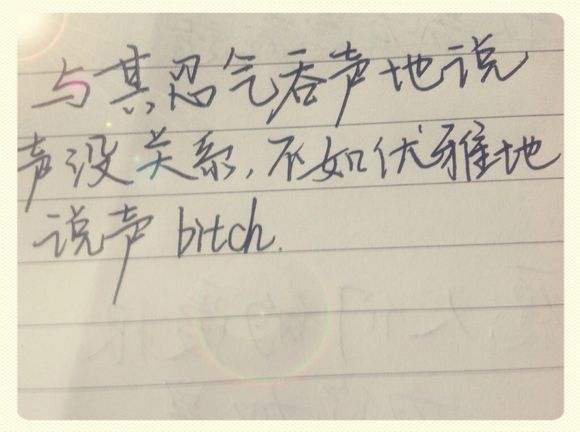 与其忍气吞声地说
声没关系,不如优雅地
说声 bitch.